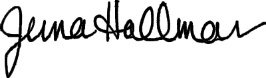 Jena Hallmar